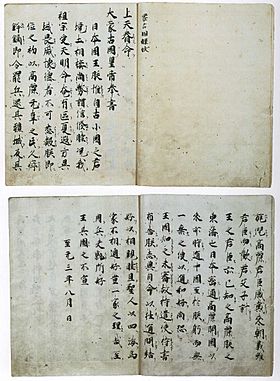 蒙古國牒状
上天眷命
大蒙古國皇帝奉書
日本國王朕惟自古小國之君
境土相接尚務講信修睦況我
祖宗受天明命奄有區夏遐方異
域畏威懷德者不可悉數朕即
位之初以高麗无辜之民久瘁
鋒鏑即令罷兵還其疆域反其
旄倪高麗君臣感戴來朝義雖
君臣而歡若父子計
王之君臣亦已知之高麗朕之
東藩也日本密迩高麗開國以
來亦時通中國至於朕躬而無
一乘之使以通和好尚恐
王國知之未審故特遣使持書
布告朕志冀自今以往通問結
好以相親睦且聖人以四海為
家不相通好豈一家之理哉至
用兵夫孰所好
王其圖之不宣
至元三年八月日